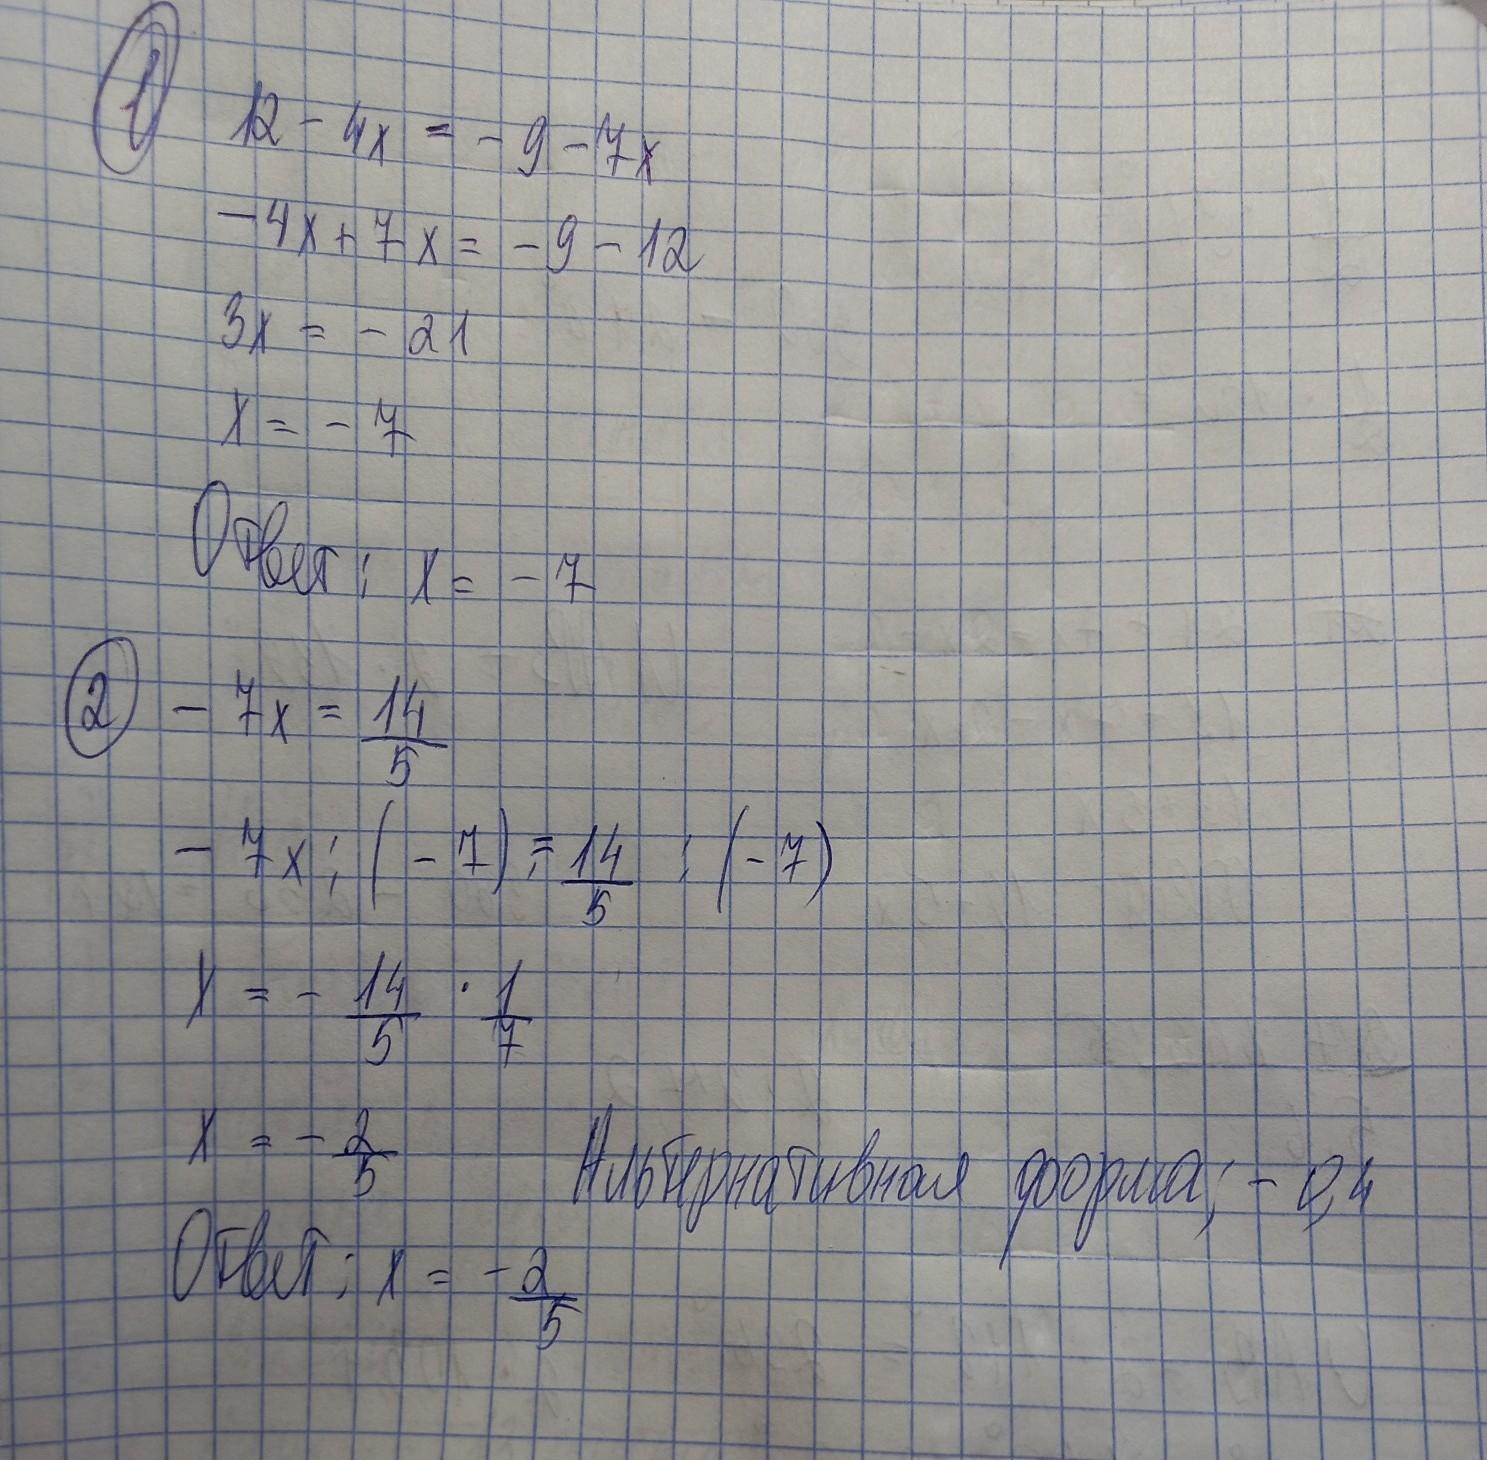 1
12 - 4x = - 9 - 7x
- 4x + 7x = - 9 - 12
3x = - 21
x = - 7
Ответ: x = - 7
2
- 7x = 14/5
- 7x : (- 7) = 14/5 : (- 7)
x = - 14/5 · 1/7
x = - 2/5 Альтернативная форма: - 0,4
Ответ: x = - 2/5